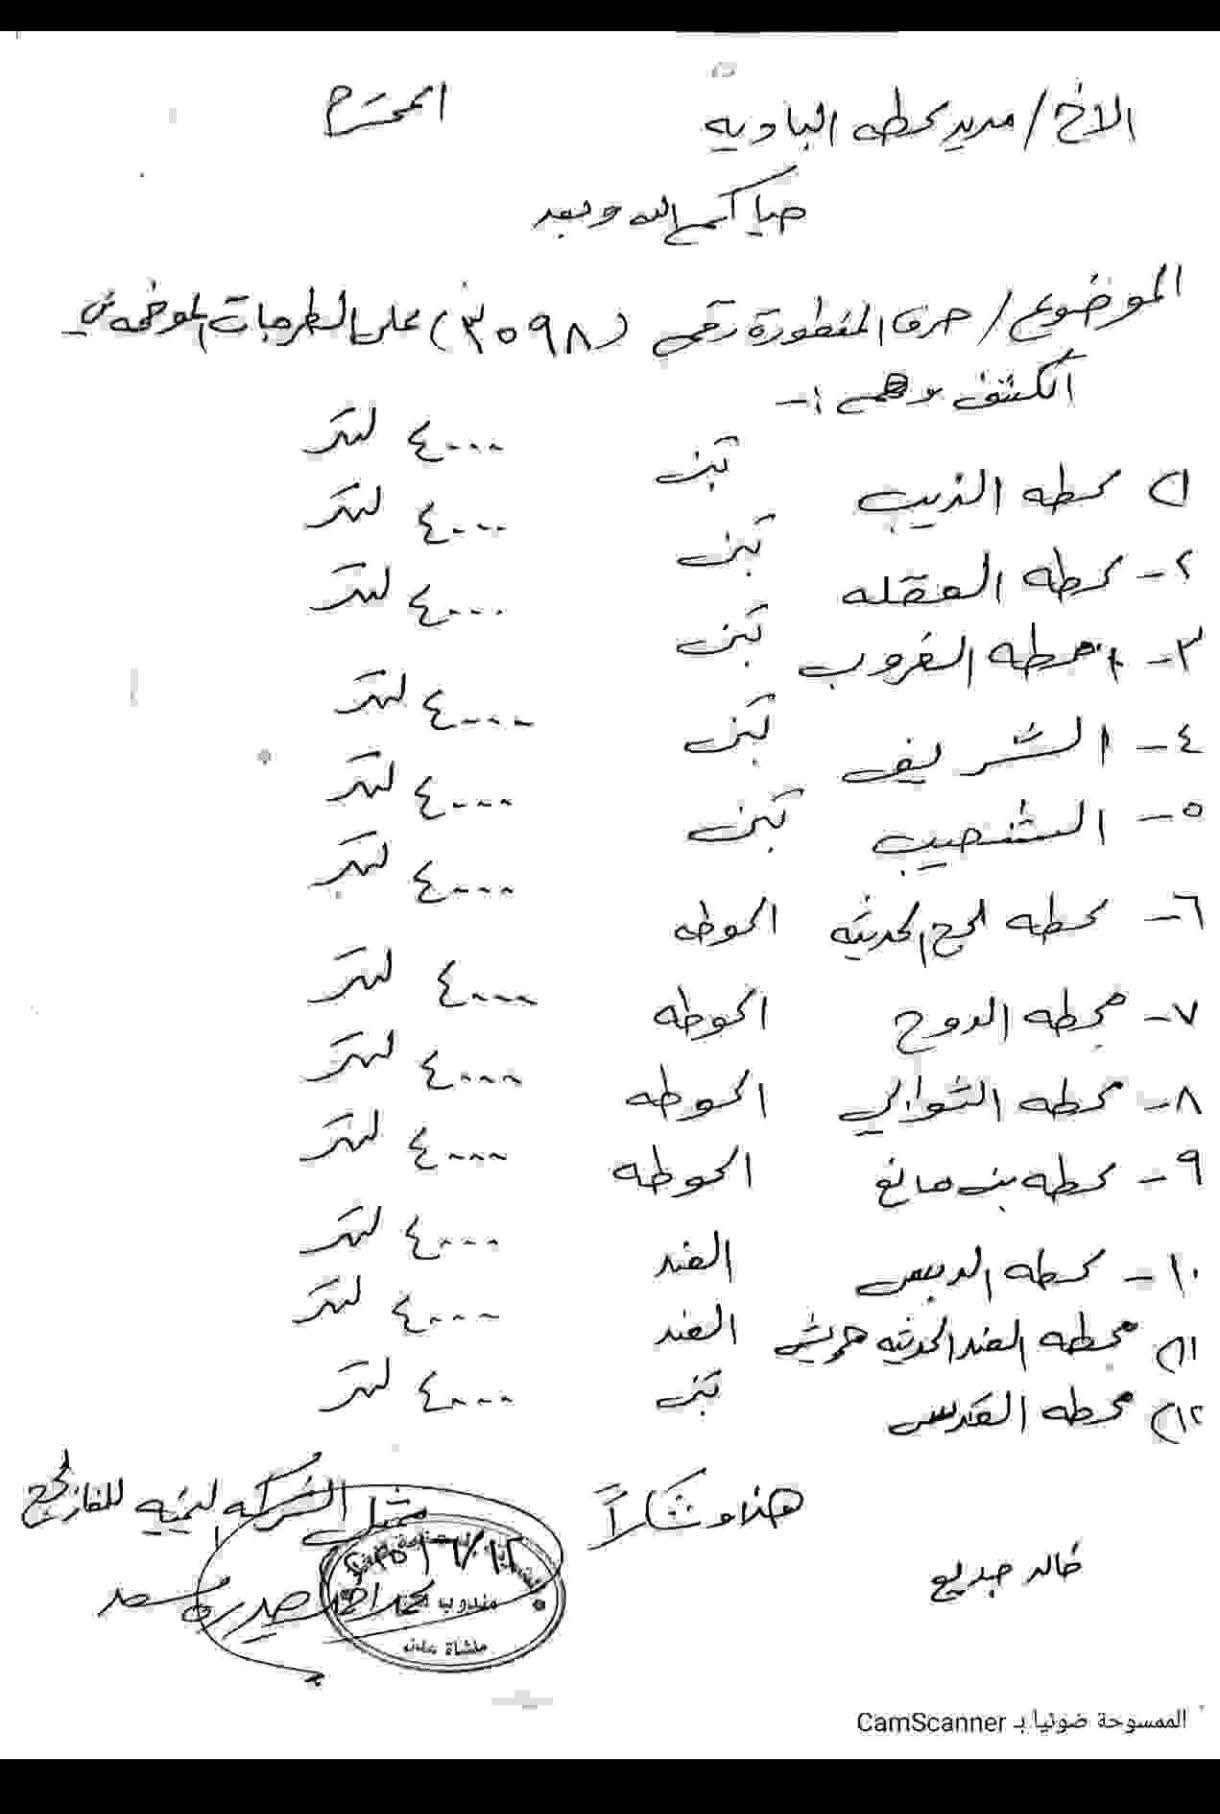 الاخ / مدير محطه الباديه المحترم
حياكم الله وبعد
الموضوع / صرف المقطورة رقم (٣٥٩٨) على الطرمبات الموضحه في
الكشف وهم :-
١) محطه الذيب تبن ٤٠٠٠ لتر
٢- محطه العقله تبن ٤٠٠٠ لتر
٣- محطه الغروب تبن ٤٠٠٠ لتر
٤- الشريف تبن ٤٠٠٠ لتر
٥- الشنصيب تبن ٤٠٠٠ لتر
٦- محطه لحج الحديثه الحوطه ٤٠٠٠ لتر
٧- محطه الدوح الحوطه ٤٠٠٠ لتر
٨- محطه الثوابي الحوطه ٤٠٠٠ لتر
٩- محطه بن مانع الحوطه ٤٠٠٠ لتر
١٠- محطه الدبيس العند ٤٠٠٠ لتر
١١) محطه العند الحديثه العند ٤٠٠٠ لتر
١٢) محطه القدس تبن ٤٠٠٠ لتر
هذا وشكراً
ممثل الشركه اليمنيه للغاز لحج
خالد جديع
محمد احمد
مندوب
منشاة عدن
الممسوحة ضوئيا بـ CamScanner